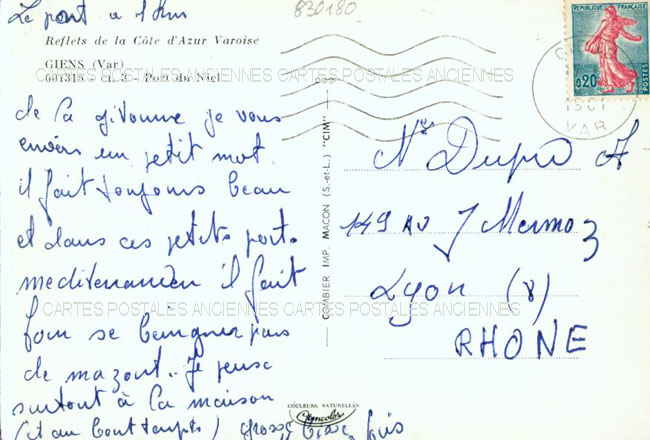 Le port a 1 km
830180
Reflets de la Côte d'Azur Varoise
GIENS (Var)
601315 - cl. 3 - Port du Niel
CARTES POSTALES ANCIENNES CARTES POSTALES ANCIENNES
de la givonne je vous
envoies un petit mot.
il fait toujours beau
et dans ces petits ports
mediterranéen il fait
bon se baigner pas
de mazout.. Je pense
surtout à la maison
(et au bout temps) grosse bises
CARTES POSTALES ANCIENNES CARTES POSTALES ANCIENNES
COMBIER IMP. MACON (S.-et-L.) "CIM"
COULEURS NATURELLES
REPUBLIQUE FRANÇAISE
0,20
POSTES
VAR
Dupré A
149 AV J Mermoz
Lyon (8)
RHONE